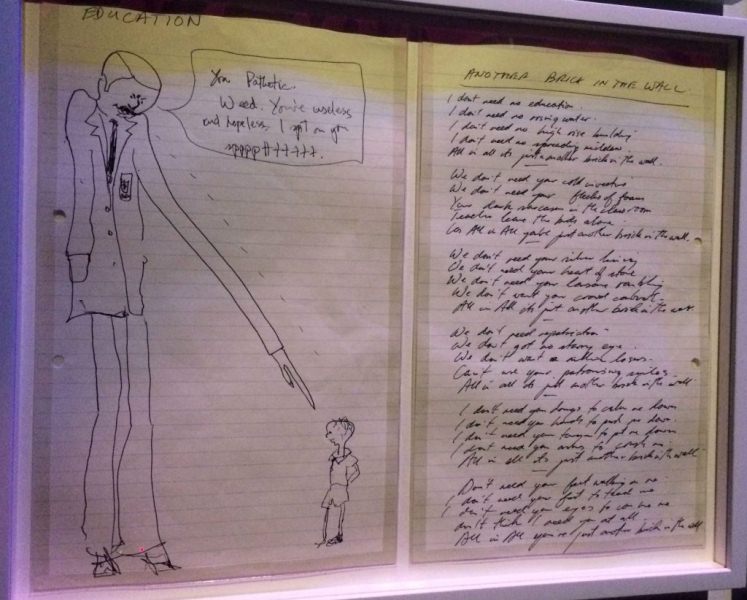 EDUCATION
You Pathetic.
Weed. You're useless
and hopeless I spit on you
ANOTHER BRICK IN THE WALL
I don't need no education.
I don't need no rising water.
I don't need no high rise building
I don't need no spreading mildew.
All in all its just another brick in the wall.
We don't need your cold
We don't need your flecks of foam
Your dark sarcasm in the classroom
Teacher leave the kids alone
All in All just another brick in the wall.
We don't need your
We don't need your heart of stone
We don't need your
We don't want your crowd control
All in All its just another brick in the wall
We don't need
We don't got no eye.
We don't want
Can't use your patronising smiles.
All in all its just another brick in the wall
I don't need your drugs to calm me down
I don't need your hands to push me down.
I don't need your to put me down
I don't need your arms to
All in all its just another brick in the wall
Don't need your feet walking on me
I don't need your to
I don't need your eyes to me
don't think I need you at all
All in All you're just another brick in the wall